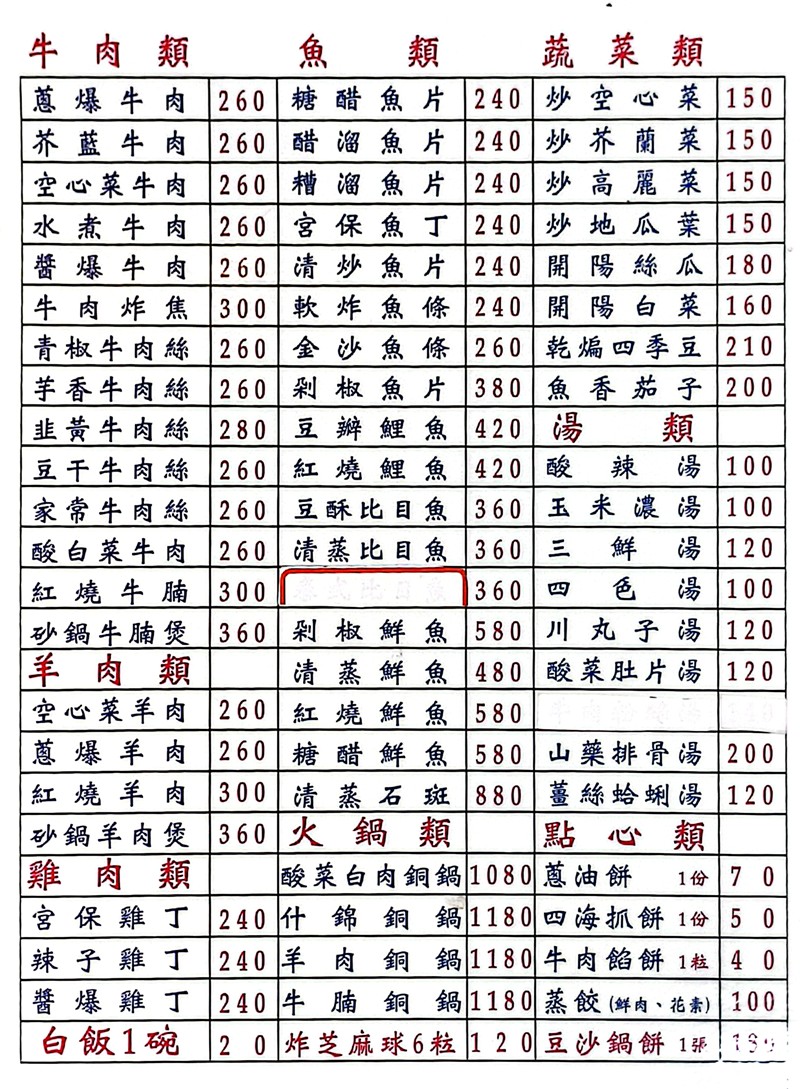 牛肉類
蔥爆牛肉 260
芥藍牛肉 260
空心菜牛肉 260
水煮牛肉 260
醬爆牛肉 260
牛肉炸焦 300
青椒牛肉絲 260
芋香牛肉絲 260
韭黃牛肉絲 280
豆干牛肉絲 260
家常牛肉絲 260
酸白菜牛肉 260
紅燒牛腩 300
砂鍋牛腩煲 360
羊肉類
空心菜羊肉 260
蔥爆羊肉 260
紅燒羊肉 300
砂鍋羊肉煲 360
雞肉類
宮保雞丁 240
辣子雞丁 240
醬爆雞丁 240
白飯1碗 20
魚類
糖醋魚片 240
醋溜魚片 240
糟溜魚片 240
宮保魚丁 240
清炒魚片 240
軟炸魚條 240
金沙魚條 260
剁椒魚片 380
豆瓣鯉魚 420
紅燒鯉魚 420
豆酥比目魚 360
清蒸比目魚 360
360
剁椒鮮魚 580
清蒸鮮魚 480
紅燒鮮魚 580
糖醋鮮魚 580
清蒸石斑 880
火鍋類
酸菜白肉銅鍋 1080
什錦銅鍋 1180
羊肉銅鍋 1180
牛腩銅鍋 1180
炸芝麻球6粒 120
蔬菜類
炒空心菜 150
炒芥蘭菜 150
炒高麗菜 150
炒地瓜葉 150
開陽絲瓜 180
開陽白菜 160
乾煸四季豆 210
魚香茄子 200
湯類
酸辣湯 100
玉米濃湯 100
三鮮湯 120
四色湯 100
川丸子湯 120
酸菜肚片湯 120
山藥排骨湯 200
薑絲蛤蜊湯 120
點心類
蔥油餅 1份 70
四海抓餅 1份 50
牛肉餡餅 1粒 40
蒸餃(鮮肉、花素) 100
豆沙鍋餅 1張